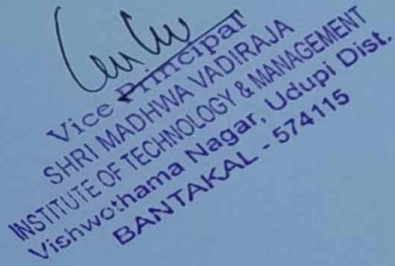 Vice Principal
SHRI MADHWA VADIRAJA
INSTITUTE OF TECHNOLOGY & MANAGEMENT
Vishwothama Nagar, Udupi Dist.
BANTAKAL - 574115